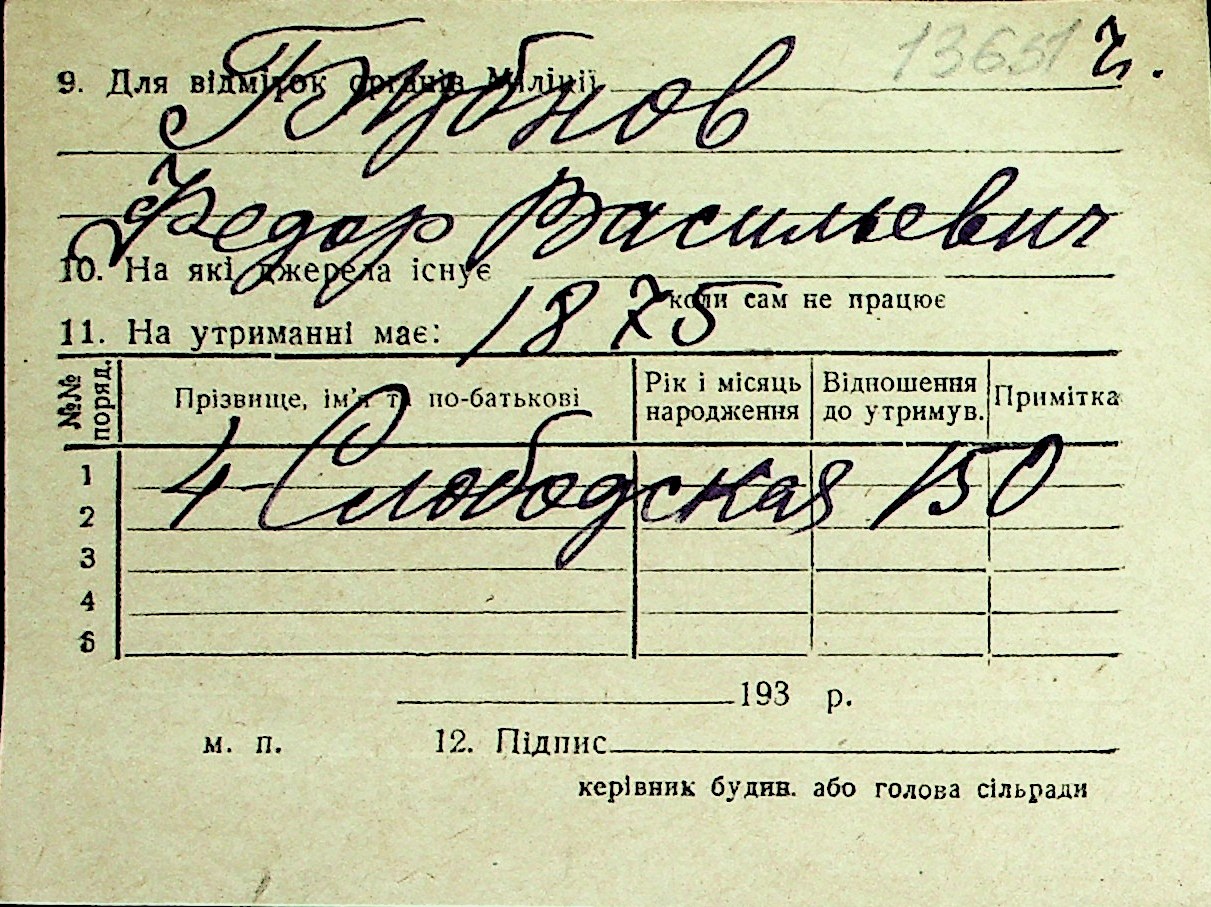 13651 ч.
9. Для відміток органів Міліції
Федор Васильевич
10. На які джерела існує
коли сам не працює
1875
11. На утриманні має:
№№ поряд. Прізвище, ім'я та по-батькові Рік і місяць народження Відношення до утримув. Примітка
4 Слободская 150
1
2
3
4
5
193 р.
м. п. 12. Підпис
керівник будин. або голова сільради